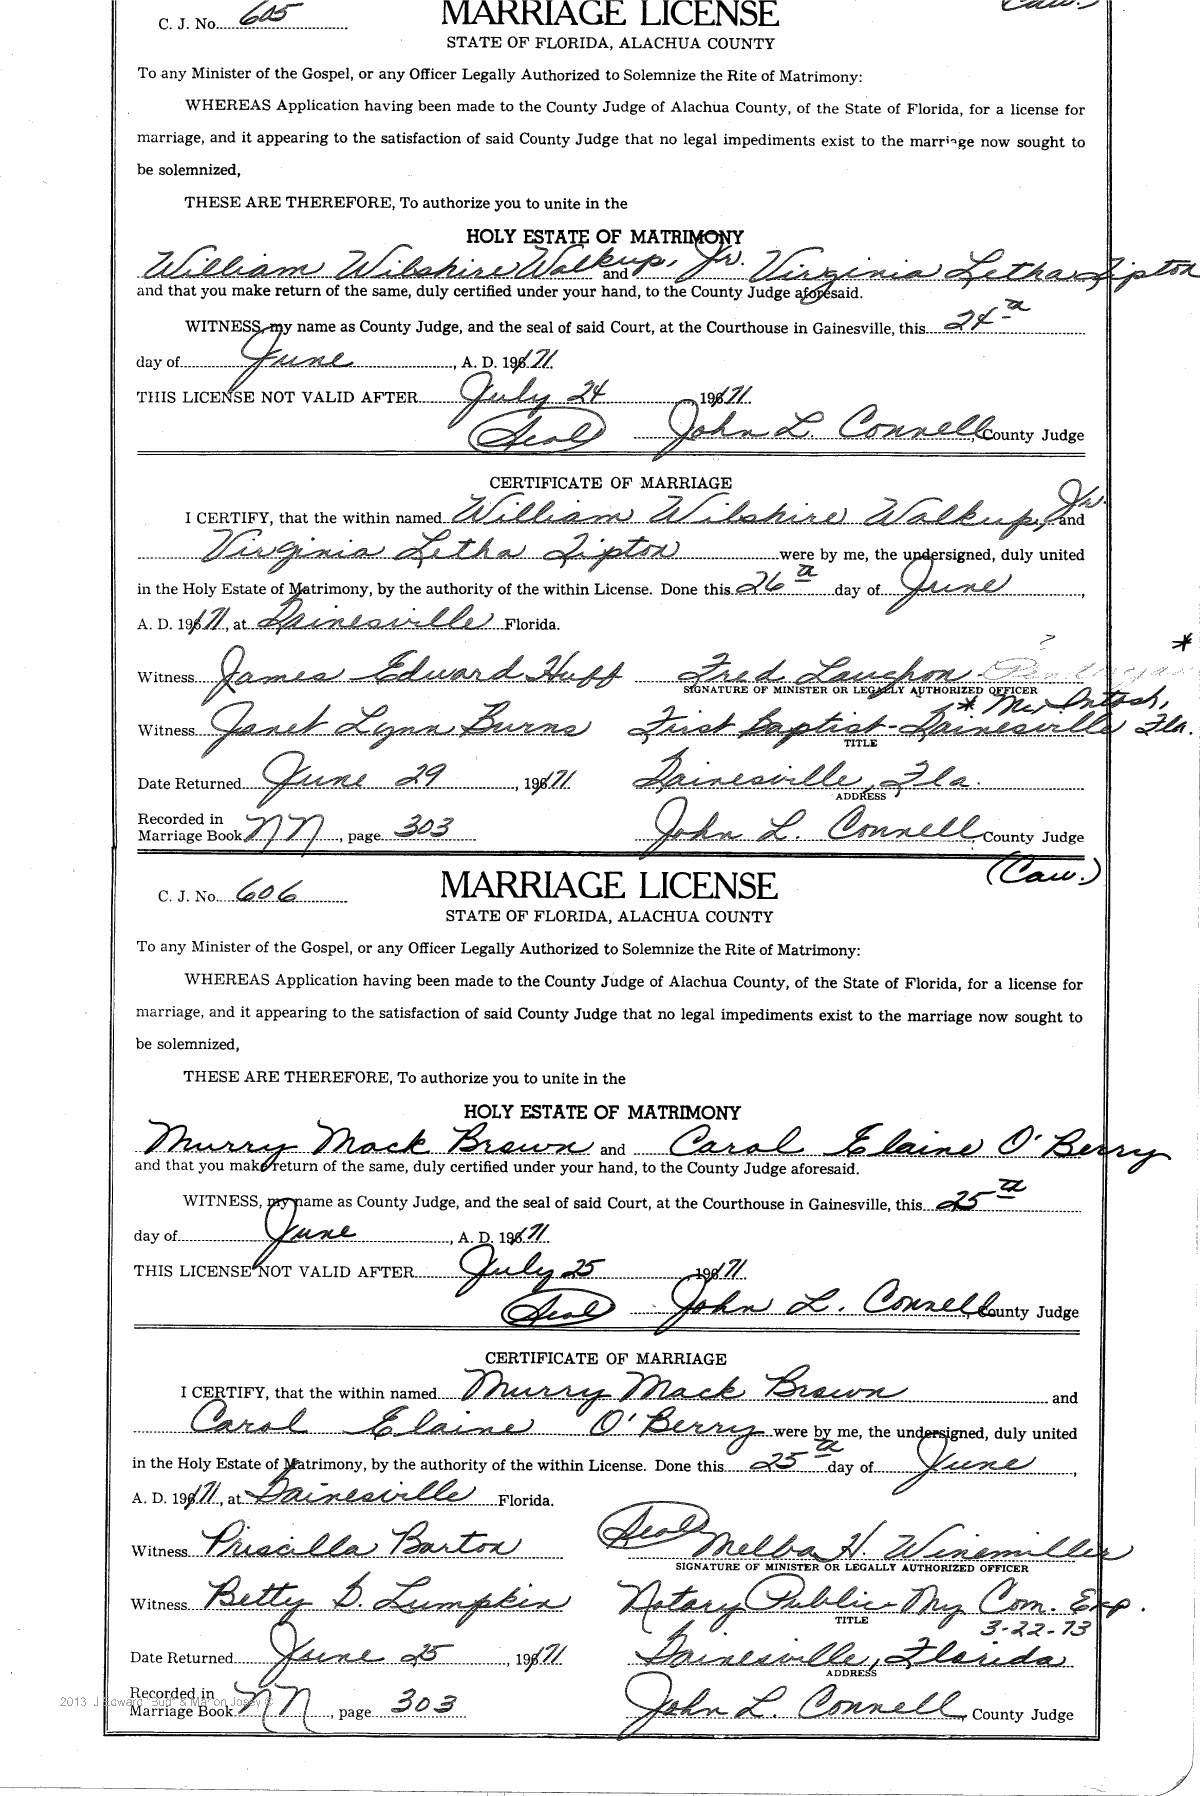 C. J. No. 605 MARRIAGE LICENSE (Caw.)
STATE OF FLORIDA, ALACHUA COUNTY
To any Minister of the Gospel, or any Officer Legally Authorized to Solemnize the Rite of Matrimony:
WHEREAS Application having been made to the County Judge of Alachua County, of the State of Florida, for a license for
marriage, and it appearing to the satisfaction of said County Judge that no legal impediments exist to the marriage now sought to
be solemnized,
THESE ARE THEREFORE, To authorize you to unite in the
HOLY ESTATE OF MATRIMONY
William Wilshire Walkup, Jr. and Virginia Letha Lipton
and that you make return of the same, duly certified under your hand, to the County Judge aforesaid.
WITNESS, my name as County Judge, and the seal of said Court, at the Courthouse in Gainesville, this 24th
day of June, A. D. 1971.
THIS LICENSE NOT VALID AFTER July 24 1971.
(Seal) John L. Connell, County Judge
CERTIFICATE OF MARRIAGE
I CERTIFY, that the within named William Wilshire Walkup, Jr. and
Virginia Letha Lipton were by me, the undersigned, duly united
in the Holy Estate of Matrimony, by the authority of the within License. Done this 26th day of June,
A. D. 1971, at Gainesville Florida.
Witness James Edward Huff Fred Laughon ? *
SIGNATURE OF MINISTER OR LEGALLY AUTHORIZED OFFICER
* McIntosh,
Witness Janet Lynn Burns First Baptist-Gainesville Fla.
TITLE
Date Returned June 29, 1971 Gainesville, Fla.
ADDRESS
Recorded in
Marriage Book NN, page 303 John L. Connell, County Judge
C. J. No. 606 MARRIAGE LICENSE (Caw.)
STATE OF FLORIDA, ALACHUA COUNTY
To any Minister of the Gospel, or any Officer Legally Authorized to Solemnize the Rite of Matrimony:
WHEREAS Application having been made to the County Judge of Alachua County, of the State of Florida, for a license for
marriage, and it appearing to the satisfaction of said County Judge that no legal impediments exist to the marriage now sought to
be solemnized,
THESE ARE THEREFORE, To authorize you to unite in the
HOLY ESTATE OF MATRIMONY
Murry Mack Brown and Carol Elaine O'Berry
and that you make return of the same, duly certified under your hand, to the County Judge aforesaid.
WITNESS, my name as County Judge, and the seal of said Court, at the Courthouse in Gainesville, this 25th
day of June, A. D. 1971.
THIS LICENSE NOT VALID AFTER July 25 1971.
(Seal) John L. Connell, County Judge
CERTIFICATE OF MARRIAGE
I CERTIFY, that the within named Murry Mack Brown and
Carol Elaine O'Berry were by me, the undersigned, duly united
in the Holy Estate of Matrimony, by the authority of the within License. Done this 25th day of June,
A. D. 1971, at Gainesville Florida.
Witness Priscilla Barton (Seal) Melba H. Winemiller
SIGNATURE OF MINISTER OR LEGALLY AUTHORIZED OFFICER
Witness Betty D. Lumpkin Notary Public-My Com. Exp.
TITLE 3-22-73
Date Returned June 25, 1971 Gainesville, Florida
ADDRESS
Recorded in
2013 J Edward "Bud" & Marion Josey ©
Marriage Book NN, page 303 John L. Connell, County Judge